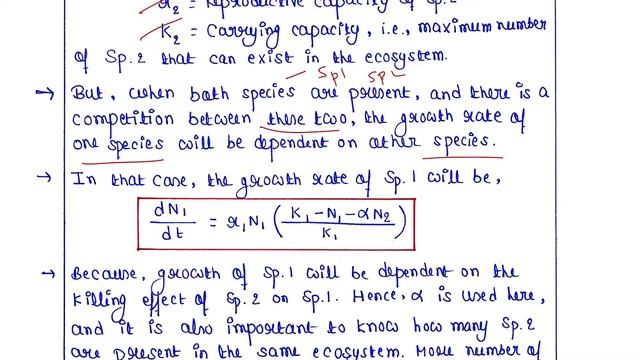 r₂ = Reproductive capacity of Sp.2
K₂ = Carrying capacity, i.e., maximum number
of Sp.2 that can exist in the ecosystem.
Sp1 Sp2
→ But, when both species are present, and there is a
competition between these two, the growth rate of
one species will be dependent on other species.
→ In that case, the growth rate of Sp.1 will be,
dN₁/dt = r₁N₁ (K₁-N₁-αN₂/K₁)
→ Because, growth of Sp.1 will be dependent on the
killing effect of Sp.2 on Sp.1. Hence, α is used here,
and it is also important to know how many Sp.2
are present in the same ecosystem. More number of